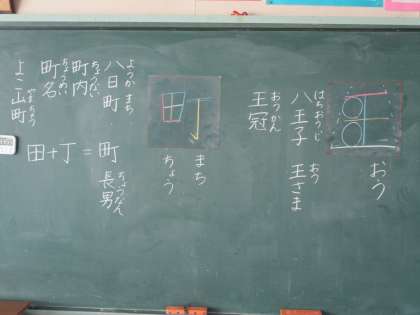 王
おう
はちおうじ おう
八王子 王さま
おうかん
王冠
町
まち
ちょう
ようか まち
八日町
ちょうない
町内
ちょうめい
町名
やまちょう
よこ山町
田+丁=町
ちょうなん
長男